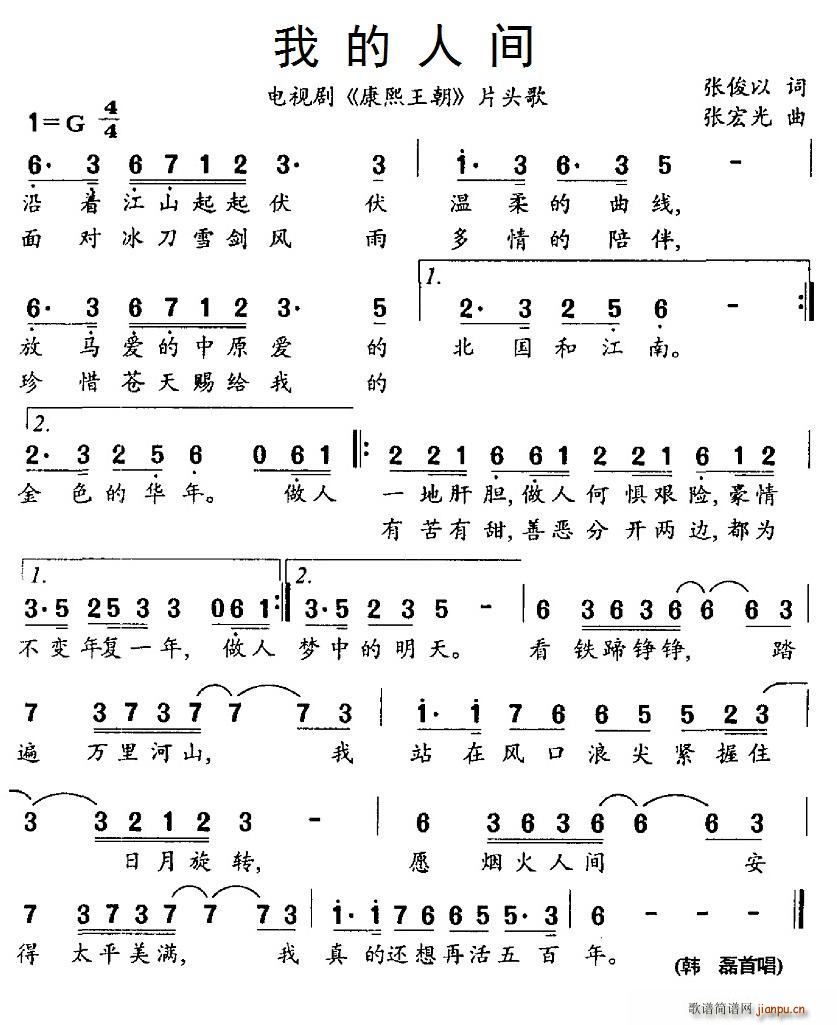 我的人间
电视剧《康熙王朝》片头歌
张俊以 词
张宏光 曲
1=G 4/4
6· 3 6 7 1 2 3· 3 | 1· 3 6· 3 5 - |
沿着江山起起伏伏温柔的曲线,
面对冰刀雪剑风雨多情的陪伴,
1.
6· 3 6 7 1 2 3· 5 | 2· 3 2 5 6 - :|
放马爱的中原爱的北国和江南。
珍惜苍天赐给我的
2.
2· 3 2 5 6 0 6 1 |: 2 2 2 1 6 6 1 2 2 2 1 6 1 2 |
金色的华年。做人一地肝胆,做人何惧艰险,豪情
有苦有甜,善恶分开两边,都为
1. 2.
3· 5 2 5 3 3 3 0 6 1 :| 3· 5 2 3 5 - | 6 3 6 3 6 6 6 3 |
不变年复一年,做人梦中的明天。看铁蹄铮铮,踏
7 3 7 3 7 7 7 3 | 1· 1 7 6 6 5 5 2 3 |
遍万里河山,我站在风口浪尖紧握住
3 3 2 1 2 3 - | 6 3 6 3 6 6 6 3 |
日月旋转,愿烟火人间安
7 3 7 3 7 7 7 3 | 1· 1 7 6 6 5 5· 3 | 6 - - - ‖
得太平美满,我真的还想再活五百年。
(韩磊首唱)
歌谱简谱网
jianpu.cn